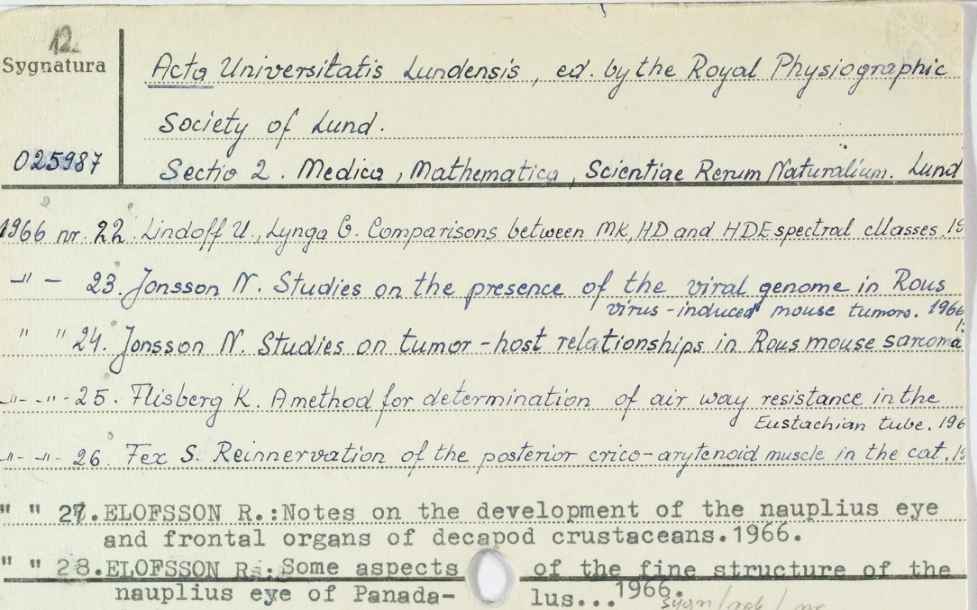 12.
Sygnatura
Acta Universitatis Lundensis, ed. by the Royal Physiographic
Society of Lund.
025987
Sectio 2. Medica, Mathematica, Scientiae Rerum Naturalium. Lund
1966 nr. 22. Lindoff U., Lynga G. Comparisons between MK, HD and HDE spectral cllasses. 19
-"- - 23. Jonsson N. Studies on the presence of the viral genome in Rous
virus-induced mouse tumors. 1966
" " 24. Jonsson N. Studies on tumor-host relationships in Rous mouse sarcoma
-"- -"- 25. Flisberg K. A method for determination of air way resistance in the
Eustachian tube. 196
-"- -"- 26. Fex S. Reinnervation of the posterior crico-arytenoid muscle in the cat. 19
" " 27. ELOFSSON R.: Notes on the development of the nauplius eye
and frontal organs of decapod crustaceans. 1966.
" " 28. ELOFSSON R.: Some aspects of the fine structure of the
nauplius eye of Panada- lus... 1966.